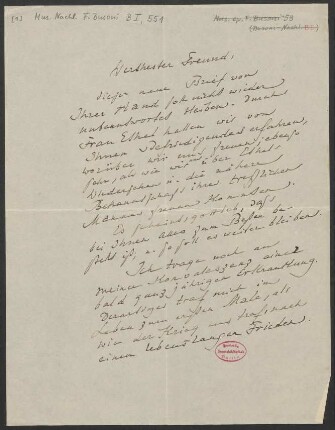 (1) Mus. Nachl. F. Busoni B I, 551
Mus. ep. F. Busoni 59
(Busoni-Nachl. B I)
Werthester Freund,
dieser neue Brief von
Ihrer Hand soll nicht wieder
unbeantwortet bleiben. Durch
Frau Ethel haben wir von
Ihnen Befriedigendes erfahren,
worüber wir uns freuen, ebenso
sehr, als wie wir über das
Wiedersehen u. die nähere
Bekanntschaft ihres trefflichen
Mannes
Es scheint, gottlob, dass
bei Ihnen Alles zum Besten be-
stellt ist, u. so soll es weiter bleiben.
Ich trage noch an
meiner Konvaleszenz einer
bald ganz jährigen Erkrankung.
Derartiges traf mich im
Leben zum ersten Male, als
wie der Krieg uns traf, nach
einem lebenslangen Frieden.